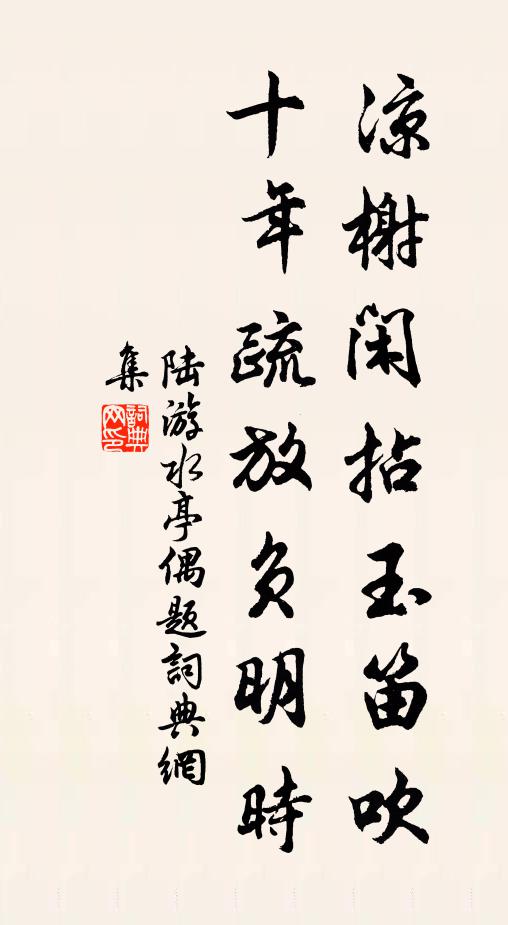 凉榭闲拈玉笛吹
十年疏放负明时
陆游水亭偶题詞典網
集
詞典網印